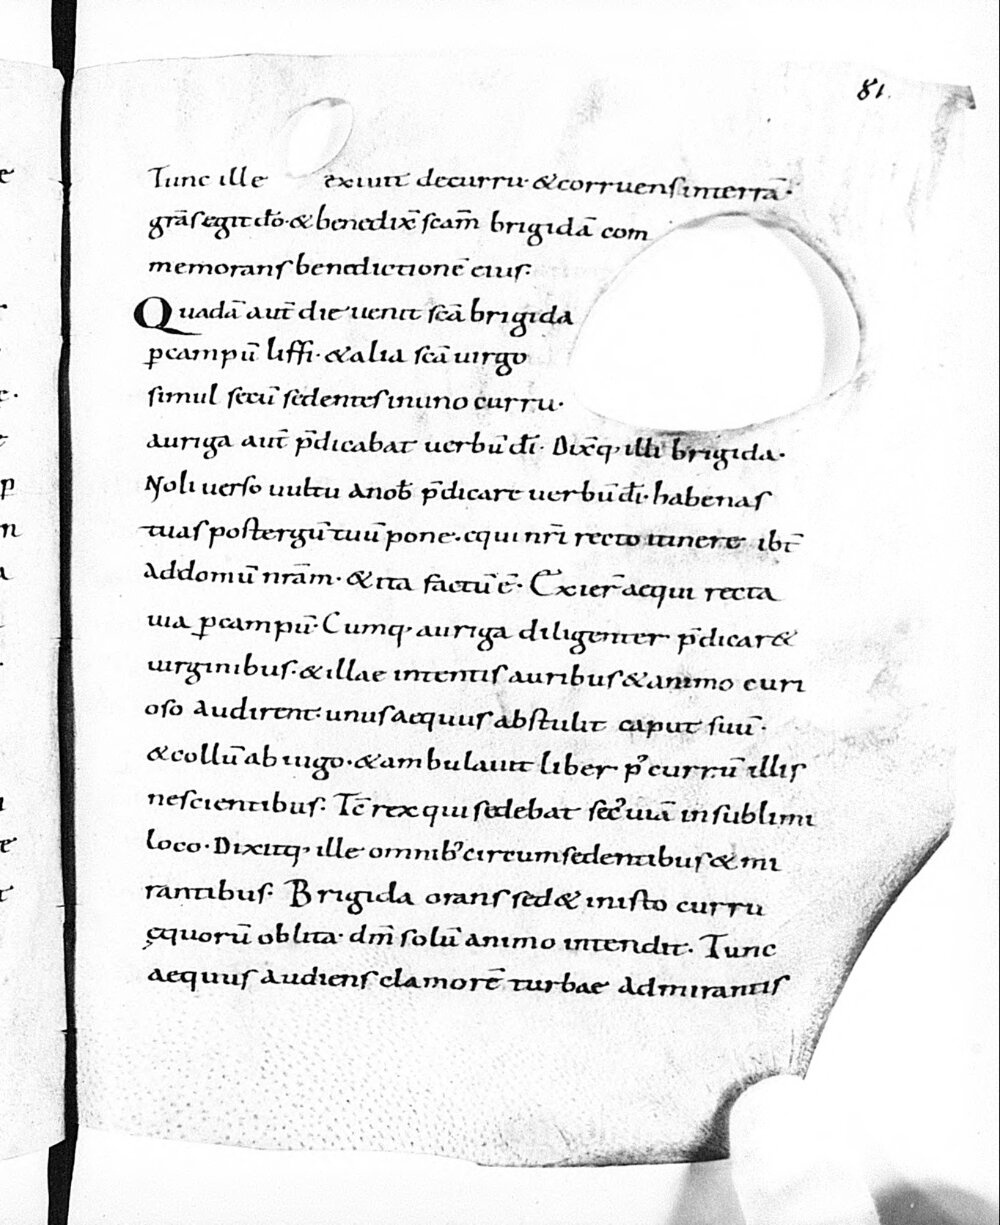 81.
Tunc ille exiuit decurru· &corruensinterrā·
grāsegit dō·&benedixē scam̄ brigidā com
memorans benedictionē eius:
Quadā aut̄ die uenit scā brigida
ꝑcampū liffi·&alia scā uirgo
simul secū sedentesinuno curru·
auriga aut̄ p̄dicabat uerbū dī· Dixq; illi brigida·
Noli uerso uultu anob̄ p̄dicare uerbū dī·habenas
tuas postergū tuū pone·equi nr̄i recto itinere ibt̄
Addomū nrām·&ita factū ē· Exier̄ aequi recta
uia ꝑcampū· Cumq; auriga diligenter p̄dicar&
uirginibus·&illae intentis auribus&animo curi
oso audirent·unusaequus abstulit caput suū·
&collū ab iugo·&ambulauit liber p̄ currū illis
nescientibus· Tc̄ rex qui sedebat sec̄ uiā in sublimi
loco·Dixitq; ille omnib; circumsedentibus& mi
rantibus· Brigida orans sed& inisto curru
ęquorū oblita· dm̄ solū animo intendit· Tunc
aequus audiens clamorē turbae admirantis